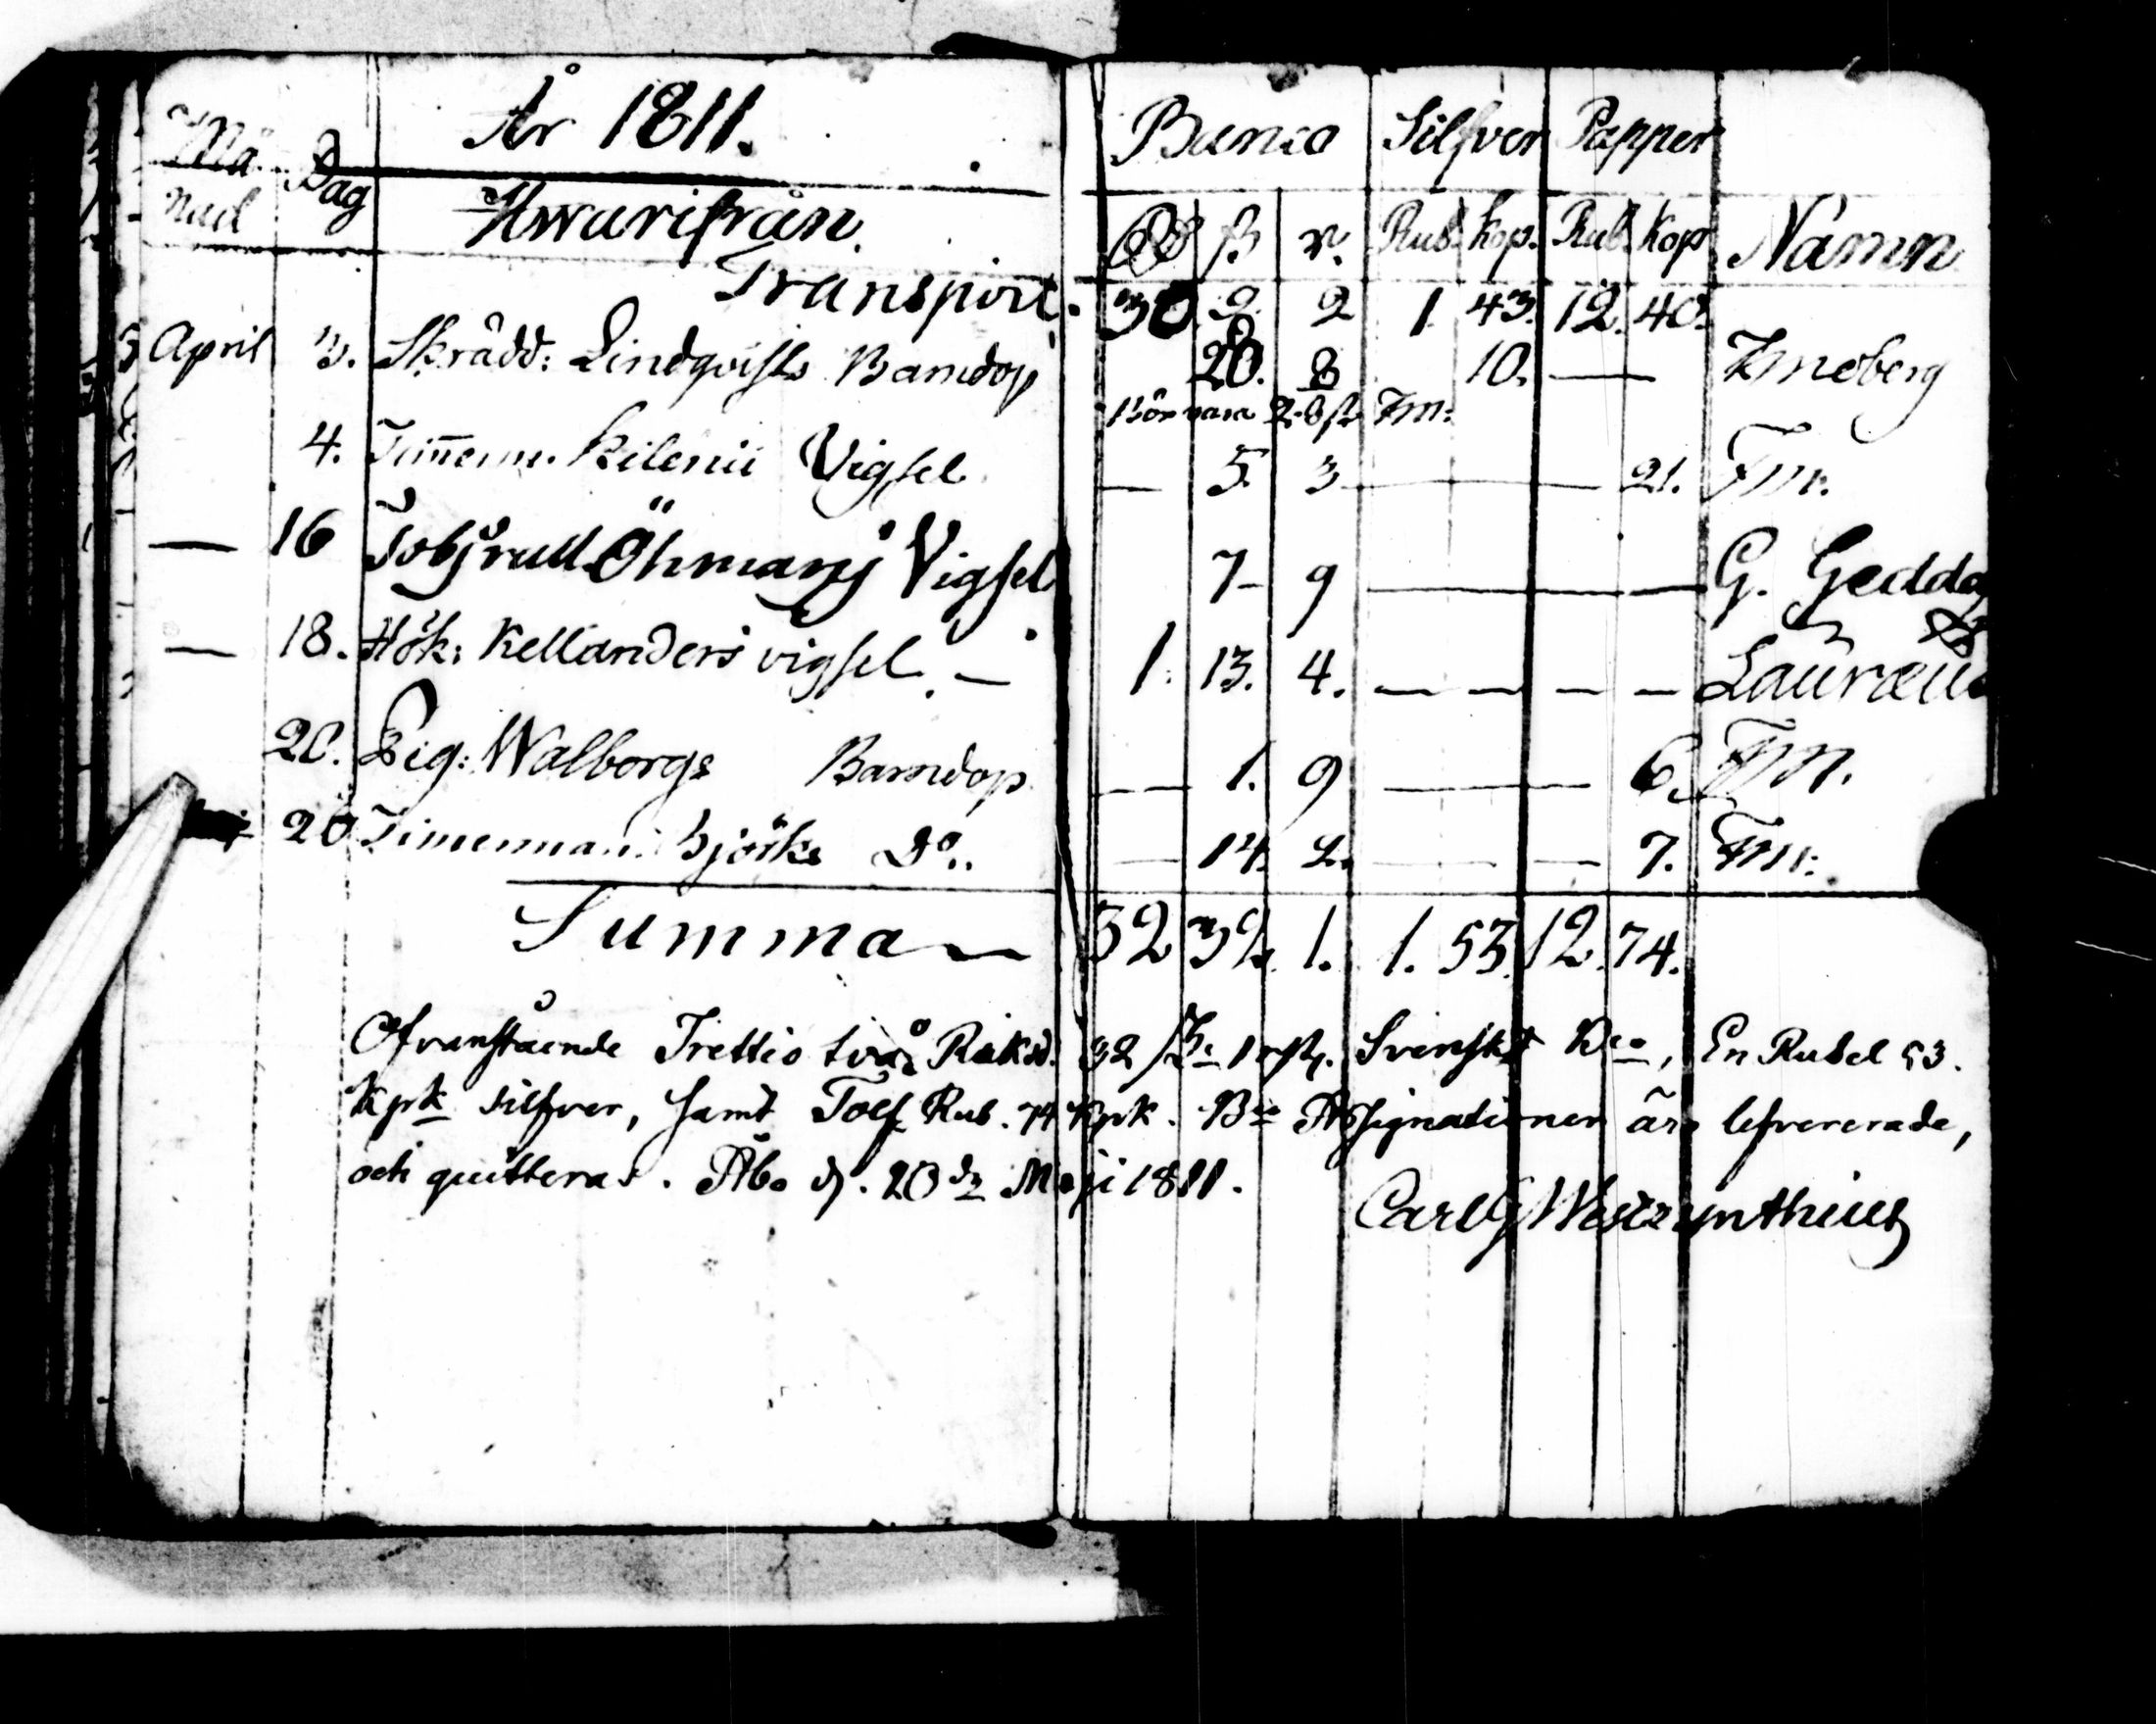 År 1811.
Må-nad Dag Hwarifrån.
Banco Silfver Papper
Rd ß r. Rub. kop. Rub. Kop Namn
Transport. 30. 2. 2 1. 43. 12. 40.
April 3. Skrådd: Lindqvists Barndop 28. 8 10. — Zmeberg
Bör vara Zm:
4. Tim̄erm. Kilenii Vigsel — 5. 3 — 21. Zm.
— 16 Öhmans Vigsel 7- 9 — G. Gedda
— 18. Hök: Kellanders vigsel. — 1. 13. 4. — — — — Lauræus
20. Pig: Walborgs Barndop — 1. 9 — 6. Zm.
20 Timerman: Björks Do. — 14. 2. — — 7. Zm:
Summa 32 32. 1. 1. 53. 12. 74.
Ofvanstående Trettio två Riksd. 32 ß 1 r. Svenskt Bco, En Rubel 53.
Kpk silfver, samt Tolf Rub. 74 Kpk. Bco Assignationer äro lefvererade,
och quitteras. Åbo d. 20 de Maji 1811.
Carl G Westzynthius